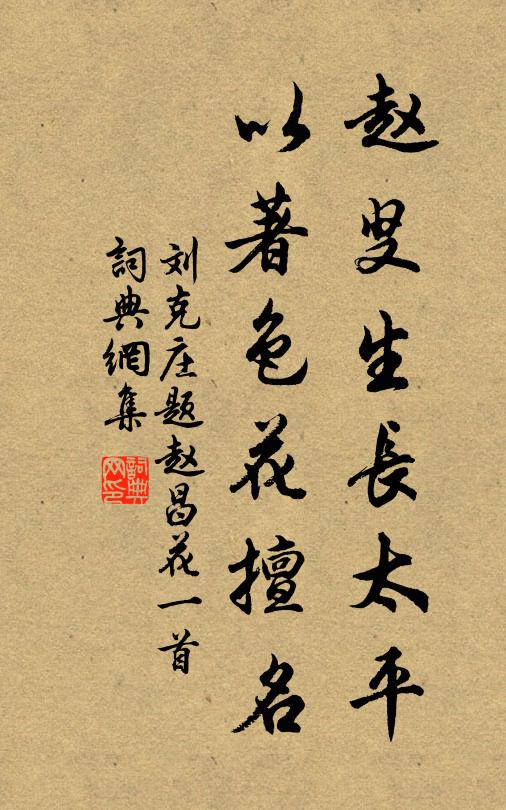 赵叟生長太平
以著色花擅名
刘克庄题赵昌花一首
詞典網集
詞典網印